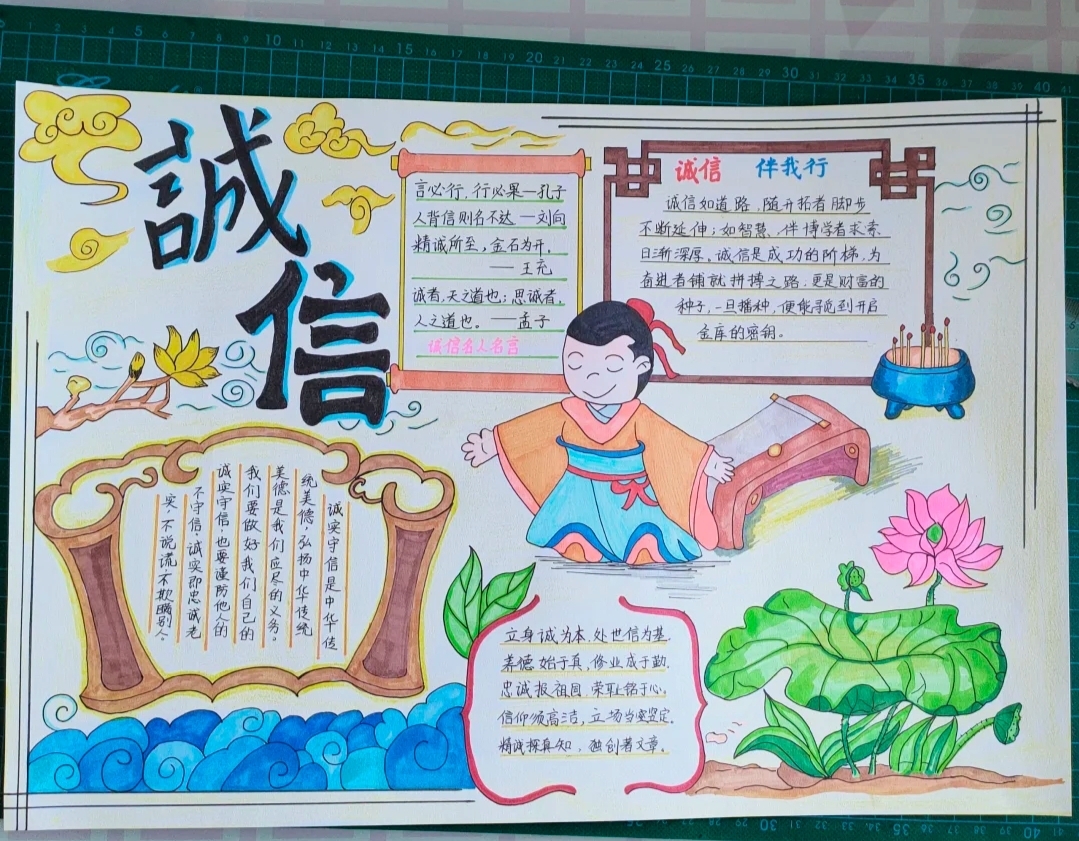 誠
信
言必行，行必果—孔子
人背信则名不达 —刘向
精诚所至，金石为开。
——王充
诚者，天之道也；思诚者，
人之道也。——孟子
诚信名人名言
诚信 伴我行
诚信如道路，随开拓者脚步
不断延伸；如智慧、伴博学者求索
日渐深厚。诚信是成功的阶梯，为
奋进者铺就拼搏之路，更是财富的
种子，一旦播种，便能寻觅到开启
金库的密钥。
诚实守信是中华传
统美德，弘扬中华传统
美德是我们应尽的义务。
我们要做好我们自己的
诚实守信，也要谨防他人的
不守信，诚实即忠诚老
实，不说谎，不欺瞒别人。
立身诚为本，处世信为基。
养德始于真，修业成于勤。
忠诚报祖国，荣耻铭于心，
信仰须高洁，立场当坚定。
精诚探真知，独创著文章。
0 1 2 3 4 5 6 7 8 9 10 11 12 13 14 15 16 17 18 19 20 21 22 23 24 25 26 27 28 29 30 31 32 33 34 35 36 37 38 39 40 41